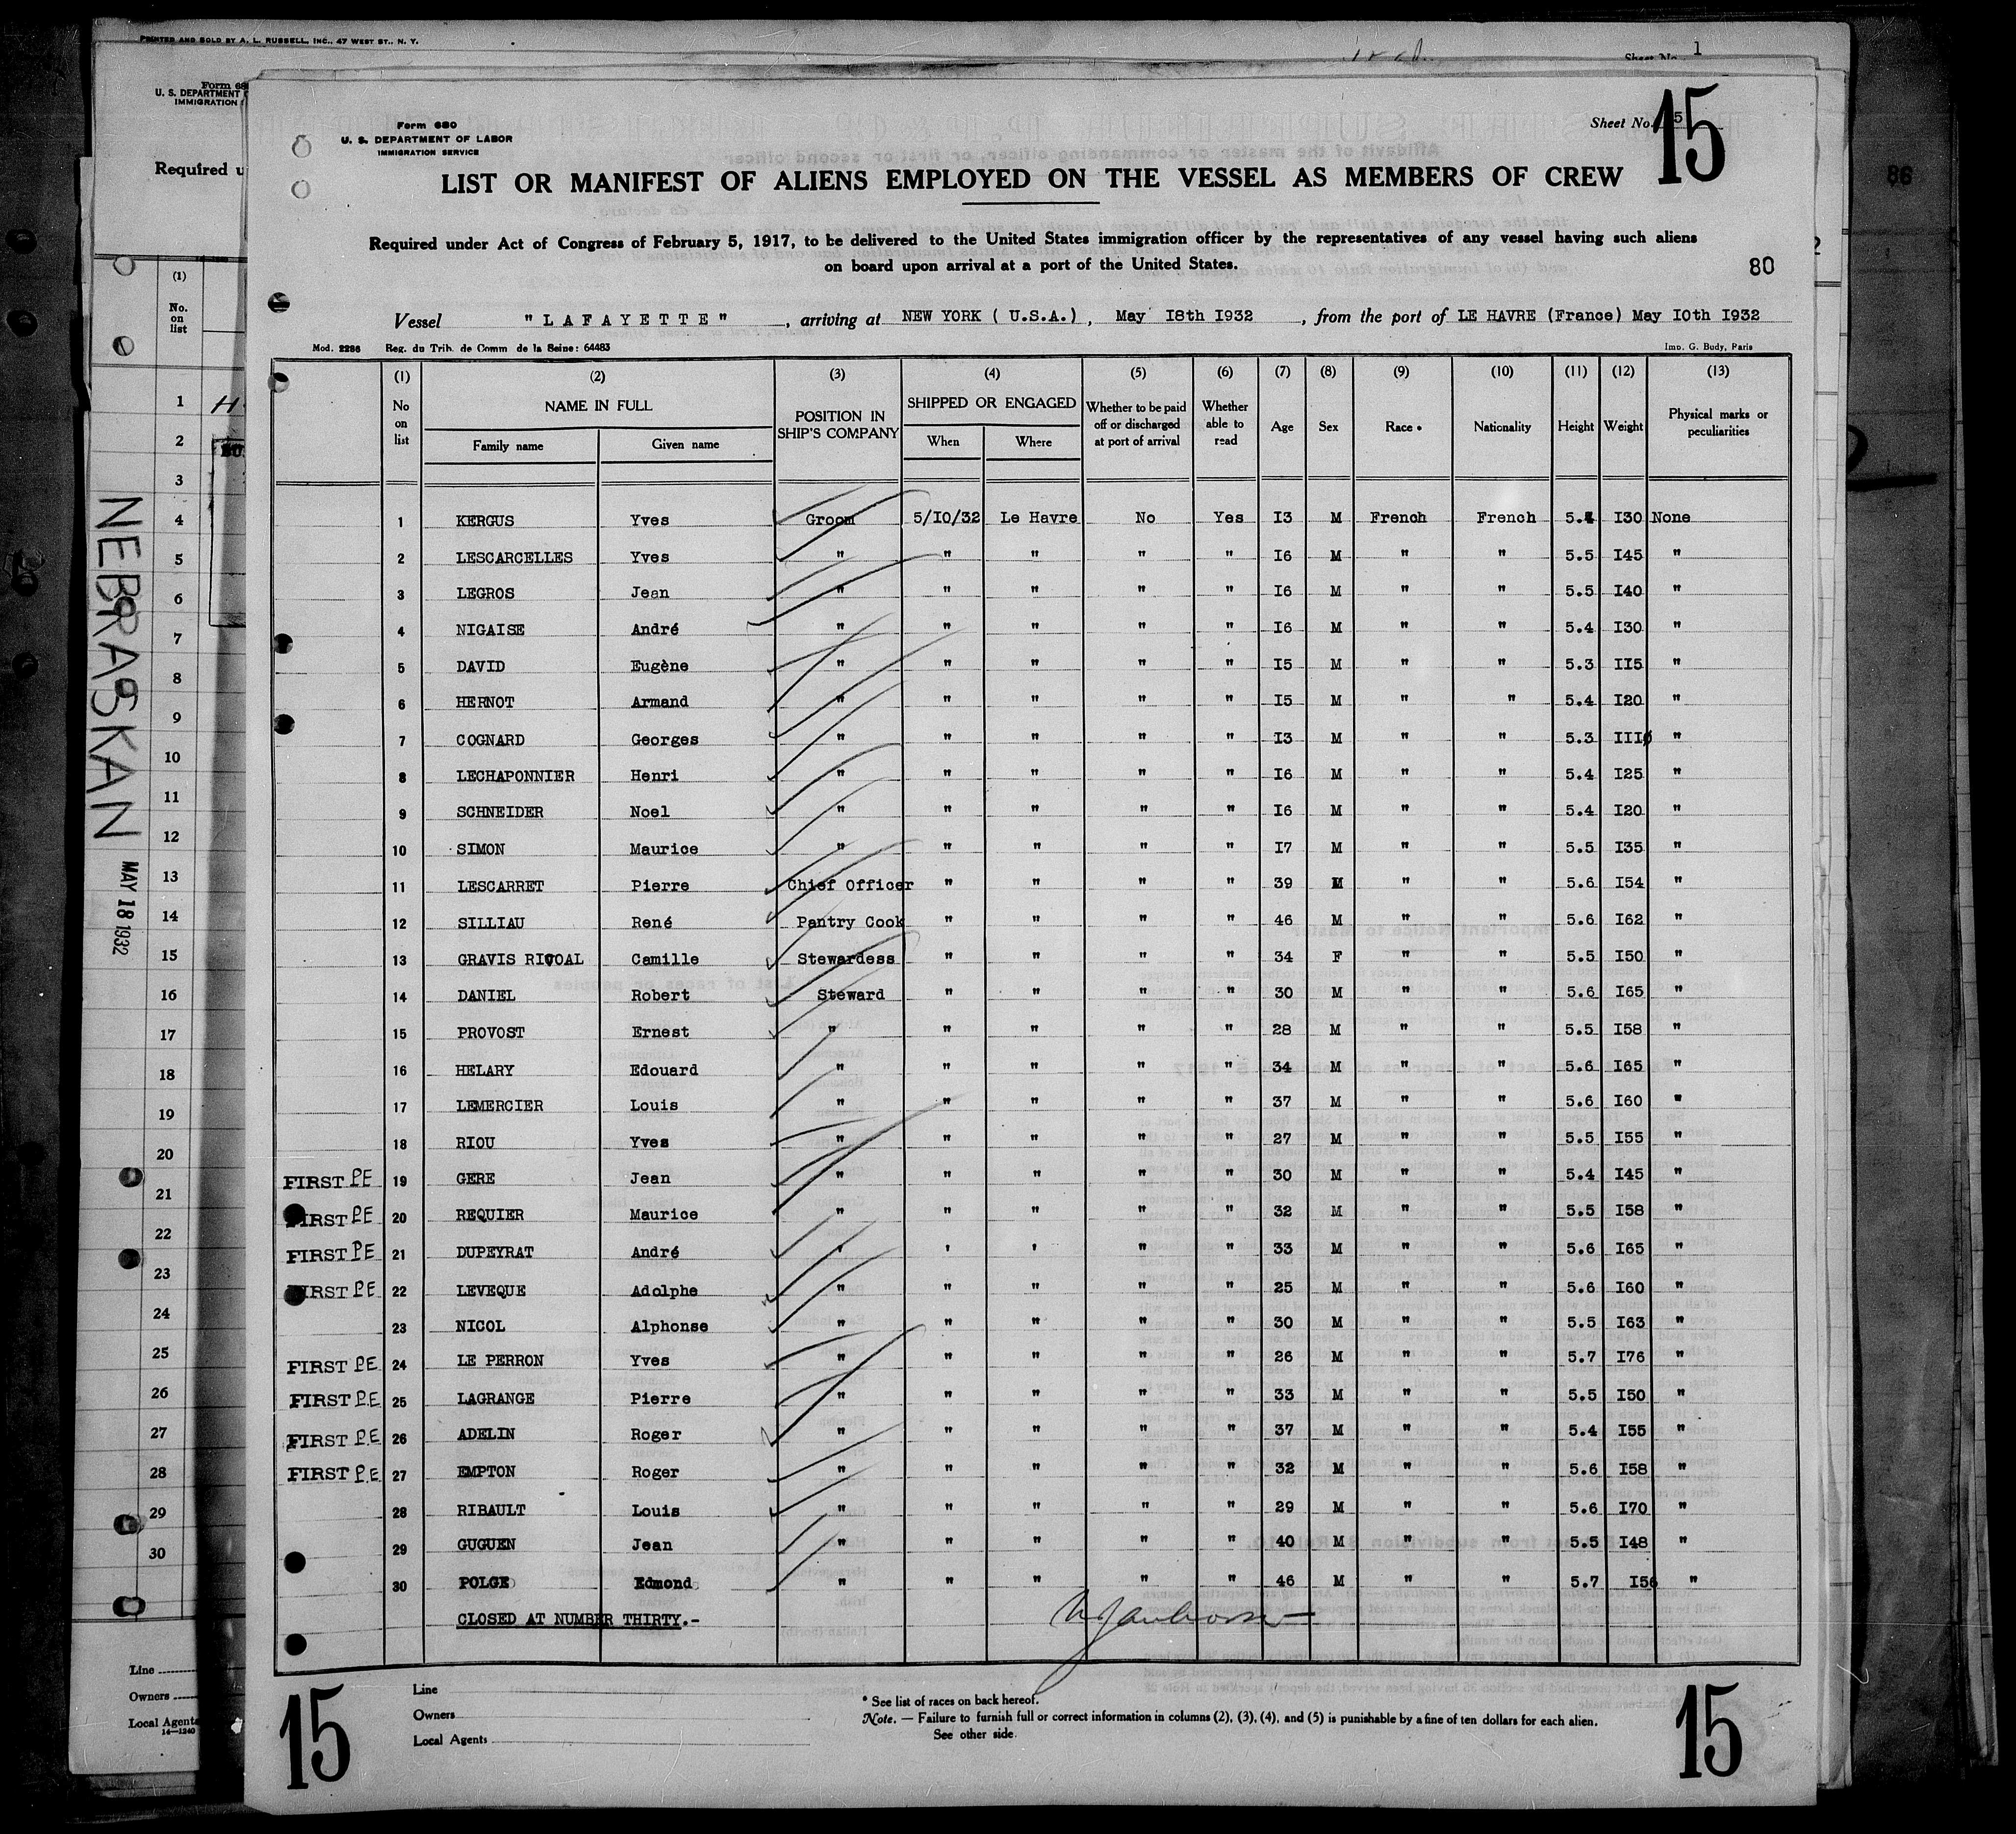 PRINTED AND SOLD BY A. L. RUSSELL, INC., 47 WEST ST., N. Y.
Sheet No. 1
Form 68
U. S. DEPARTMENT
IMMIGRATION
Required u
(1)
No. on list
1
2
3
4
5
6
7
8
9
10
11
12
13
14
15
16
17
18
19
20
21
22
23
24
25
26
27
28
29
30
NEBRASKAN
MAY 18 1932
Line
Owners
Local Agents
14—1240
86
Form 680
U. S. DEPARTMENT OF LABOR
IMMIGRATION SERVICE
Sheet No. 5
15
LIST OR MANIFEST OF ALIENS EMPLOYED ON THE VESSEL AS MEMBERS OF CREW
Required under Act of Congress of February 5, 1917, to be delivered to the United States immigration officer by the representatives of any vessel having such aliens
on board upon arrival at a port of the United States.
80
Vessel "LAFAYETTE", arriving at NEW YORK ( U.S.A.), May I8th I932, from the port of LE HAVRE (France) May I0th I932
Mod. 2286 Reg. du Trib. de Comm de la Seine: 64483 Imp. G. Budy, Paris
(1) (2) (3) (4) (5) (6) (7) (8) (9) (10) (11) (12) (13)
No on list NAME IN FULL Family name Given name POSITION IN SHIP'S COMPANY SHIPPED OR ENGAGED When Where Whether to be paid off or discharged at port of arrival Whether able to read Age Sex Race * Nationality Height Weight Physical marks or peculiarities
1 KERGUS Yves Groom 5/I0/32 Le Havre No Yes I3 M French French 5. I30 None
2 LESCARCELLES Yves " " " " " I6 M " " 5.5 I45 "
3 LEGROS Jean " " " " " I6 M " " 5.5 I40 "
4 NIGAISE André " " " " " I6 M " " 5.4 I30 "
5 DAVID Eugène " " " " " I5 M " " 5.3 II5 "
6 HERNOT Armand " " " " " I5 M " " 5.4 I20 "
7 COGNARD Georges " " " " " I3 M " " 5.3 III0 "
8 LECHAPONNIER Henri " " " " " I6 M " " 5.4 I25 "
9 SCHNEIDER Noel " " " " " I6 M " " 5.4 I20 "
10 SIMON Maurice " " " " " I7 M " " 5.5 I35 "
11 LESCARRET Pierre Chief Officer " " " " 39 M " " 5.6 I54 "
12 SILLIAU René Pantry Cook " " " " 46 M " " 5.6 I62 "
13 GRAVIS RIVOAL Camille Stewardess " " " " 34 F " " 5.5 I50 "
14 DANIEL Robert Steward " " " " 30 M " " 5.6 I65 "
15 PROVOST Ernest " " " " " 28 M " " 5.5 I58 "
16 HELARY Edouard " " " " " 34 M " " 5.6 I65 "
17 LEMERCIER Louis " " " " " 37 M " " 5.6 I60 "
18 RIOU Yves " " " " " 27 M " " 5.5 I55 "
FIRST PE 19 GERE Jean " " " " " 30 M " " 5.4 I45 "
FIRST PE 20 REQUIER Maurice " " " " " 32 M " " 5.5 I58 "
FIRST PE 21 DUPEYRAT André ' ' ' " " 33 M " " 5.6 I65 "
FIRST PE 22 LEVEQUE Adolphe " " " " " 25 M " " 5.6 I60 "
23 NICOL Alphonse " " " " " 30 M " " 5.5 I63 "
FIRST PE 24 LE PERRON Yves " " " " " 26 M " " 5.7 I76 "
FIRST P.E 25 LAGRANGE Pierre " " " " " 33 M " " 5.5 I50 "
FIRST PE 26 ADELIN Roger " " " " " 37 M " " 5.4 I55 "
FIRST P.E 27 EMPTON Roger " " " " " 32 M " " 5.6 I58 "
28 RIBAULT Louis " " " " " 29 M " " 5.6 I70 "
29 GUGUEN Jean " " " " " 40 M " " 5.5 I48 "
30 POLGE Edmond " " " " " 46 M " " 5.7 I56 "
CLOSED AT NUMBER THIRTY.-
Line
Owners
Local Agents
* See list of races on back hereof.
Note. — Failure to furnish full or correct information in columns (2), (3), (4), and (5) is punishable by a fine of ten dollars for each alien.
See other side.
15
15